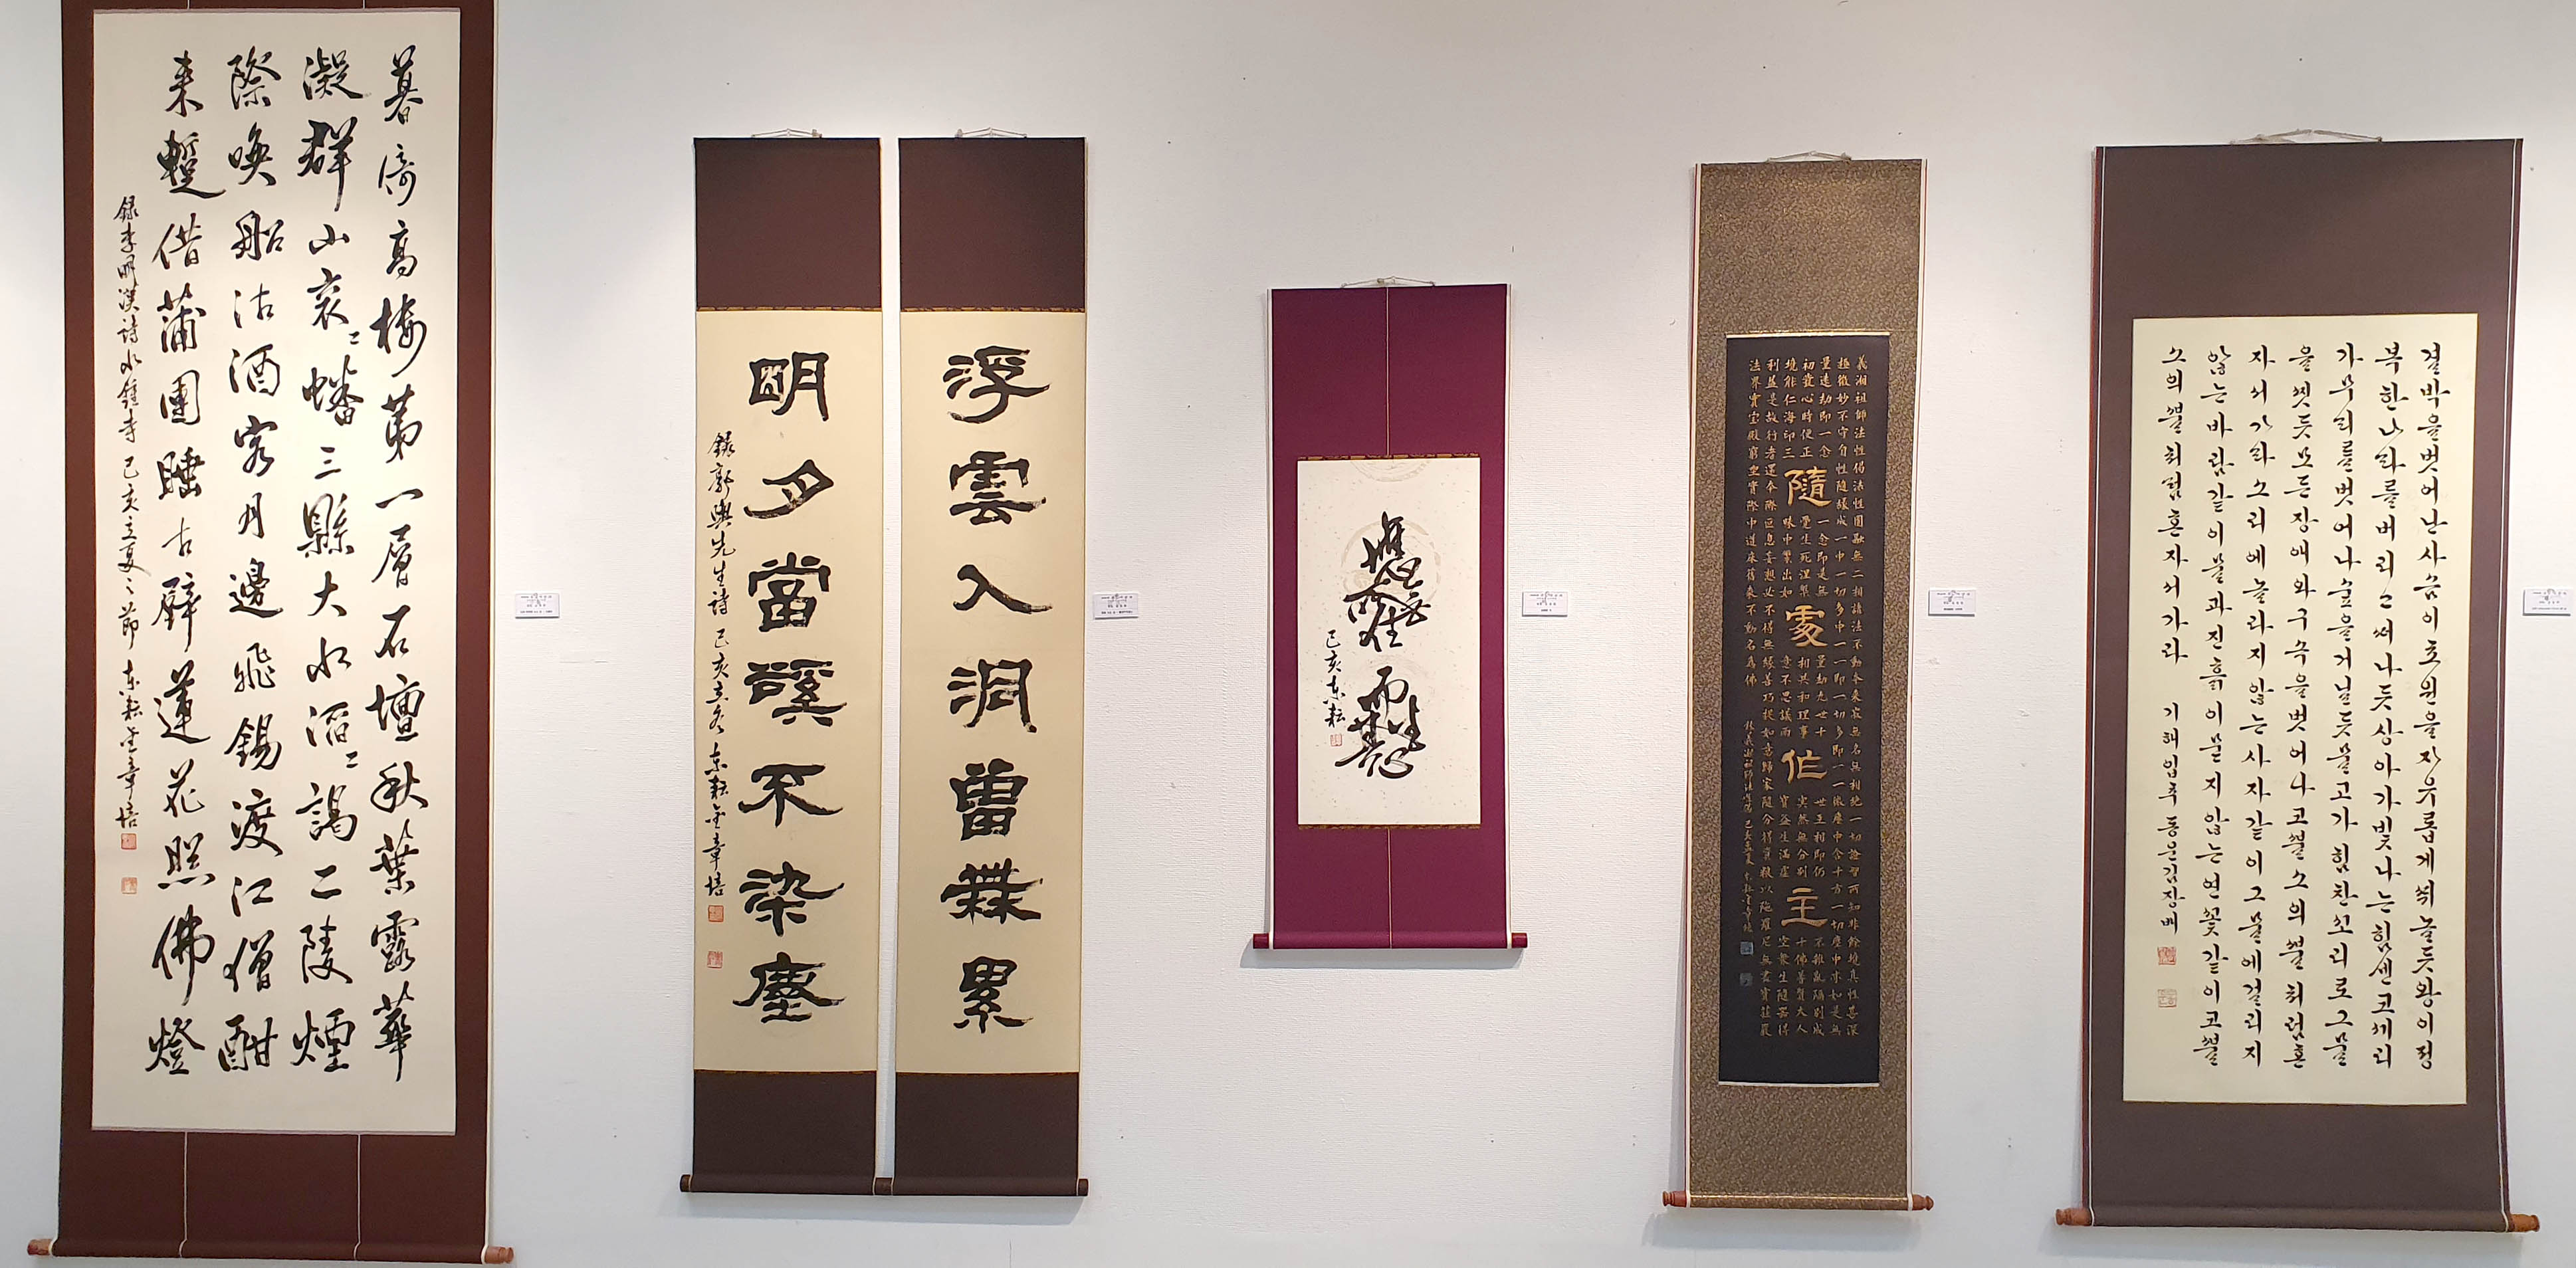 暮倚高樓第一層石壇秋葉露華
凝群山衮〻蟠三縣大水滔〻謁二陵煙
際喚船沽酒客月邊飛錫渡江僧酣
来暫借蒲團睡古壁蓮花照佛燈
錄李明漢詩水鍾寺 己亥立夏之節 東耘金章培
浮雲入洞曾橆累
明月當磎不染塵
先生詩 己亥立冬 東耘金章培
應無所住
而生其心
己亥東耘
隨處作主
義湘祖師法性偈法性圓融無二相諸法不動本來寂無名無相絶一切證智所知非餘境真性甚深
極微妙不守自性隨緣成一中一切多中一一即一切多即一一微塵中含十方一切塵中亦如是無
量遠劫即一念一念即是無量劫九世十世互相即仍不雜亂隔別成
初發心時便正覺生死涅槃相共和理事冥然無分別十佛普賢大人
境能仁海印三昧中繁出如意不思議雨寶益生滿虛空衆生隨器得
利益是故行者還本際叵息妄想必不得無緣善巧捉如意歸家隨分得資糧以陀羅尼無盡寶莊嚴
法界實宝殿窮坐實際中道床舊來不動名爲佛
결박을벗어난사슴이초원을자유롭게뛰놀듯왕이정
복한나라를버리고떠나듯상아가빛나는힘센코끼리
가무리를벗어나숲을거닐듯물고가힘찬꼬리로그물
을찢듯모든장애와구속을벗어나코뿔소의뿔처럼혼
자서가라소리에놀라지않는사자같이그물에걸리지
않는바람같이물과진흙이묻지않는연꽃같이코뿔
소의뿔처럼혼자서가라 기해입추 동운김장배